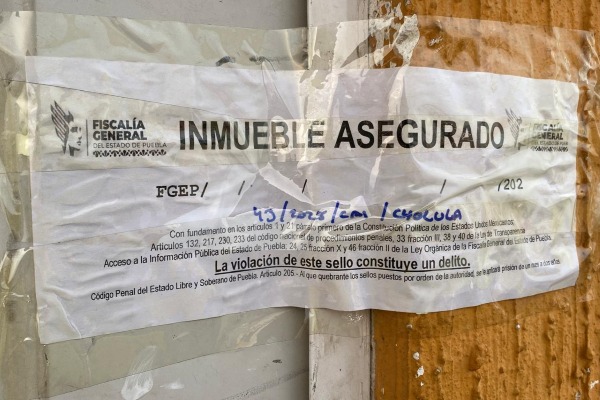 FISCALÍA
GENERAL
DEL ESTADO DE PUEBLA
INMUEBLE ASEGURADO
FISCALÍA
GENERAL
DEL ESTADO DE PUEBLA
FGEP/ / / / / /202
43/2025/cm/CHOLULA
Con fundamento en los artículos 1 y 21 párrafo primero de la Constitución Política de los Estados Unidos Mexicanos;
Artículos 132, 217, 230, 233 del código nacional de procedimientos penales, 33 fracción III, 38 y 40 de la ley de Transparencia
Acceso a la Información Pública del Estado de Puebla; 24, 25 fracción X y 46 fracción II de la Ley Orgánica de la Fiscalía General del Estado de Puebla.
La violación de este sello constituye un delito.
Código Penal del Estado Libre y Soberano de Puebla. Artículo 205 - Al que quebrante los sellos puestos por orden de la autoridad, se aplicará prisión de un mes a dos años.